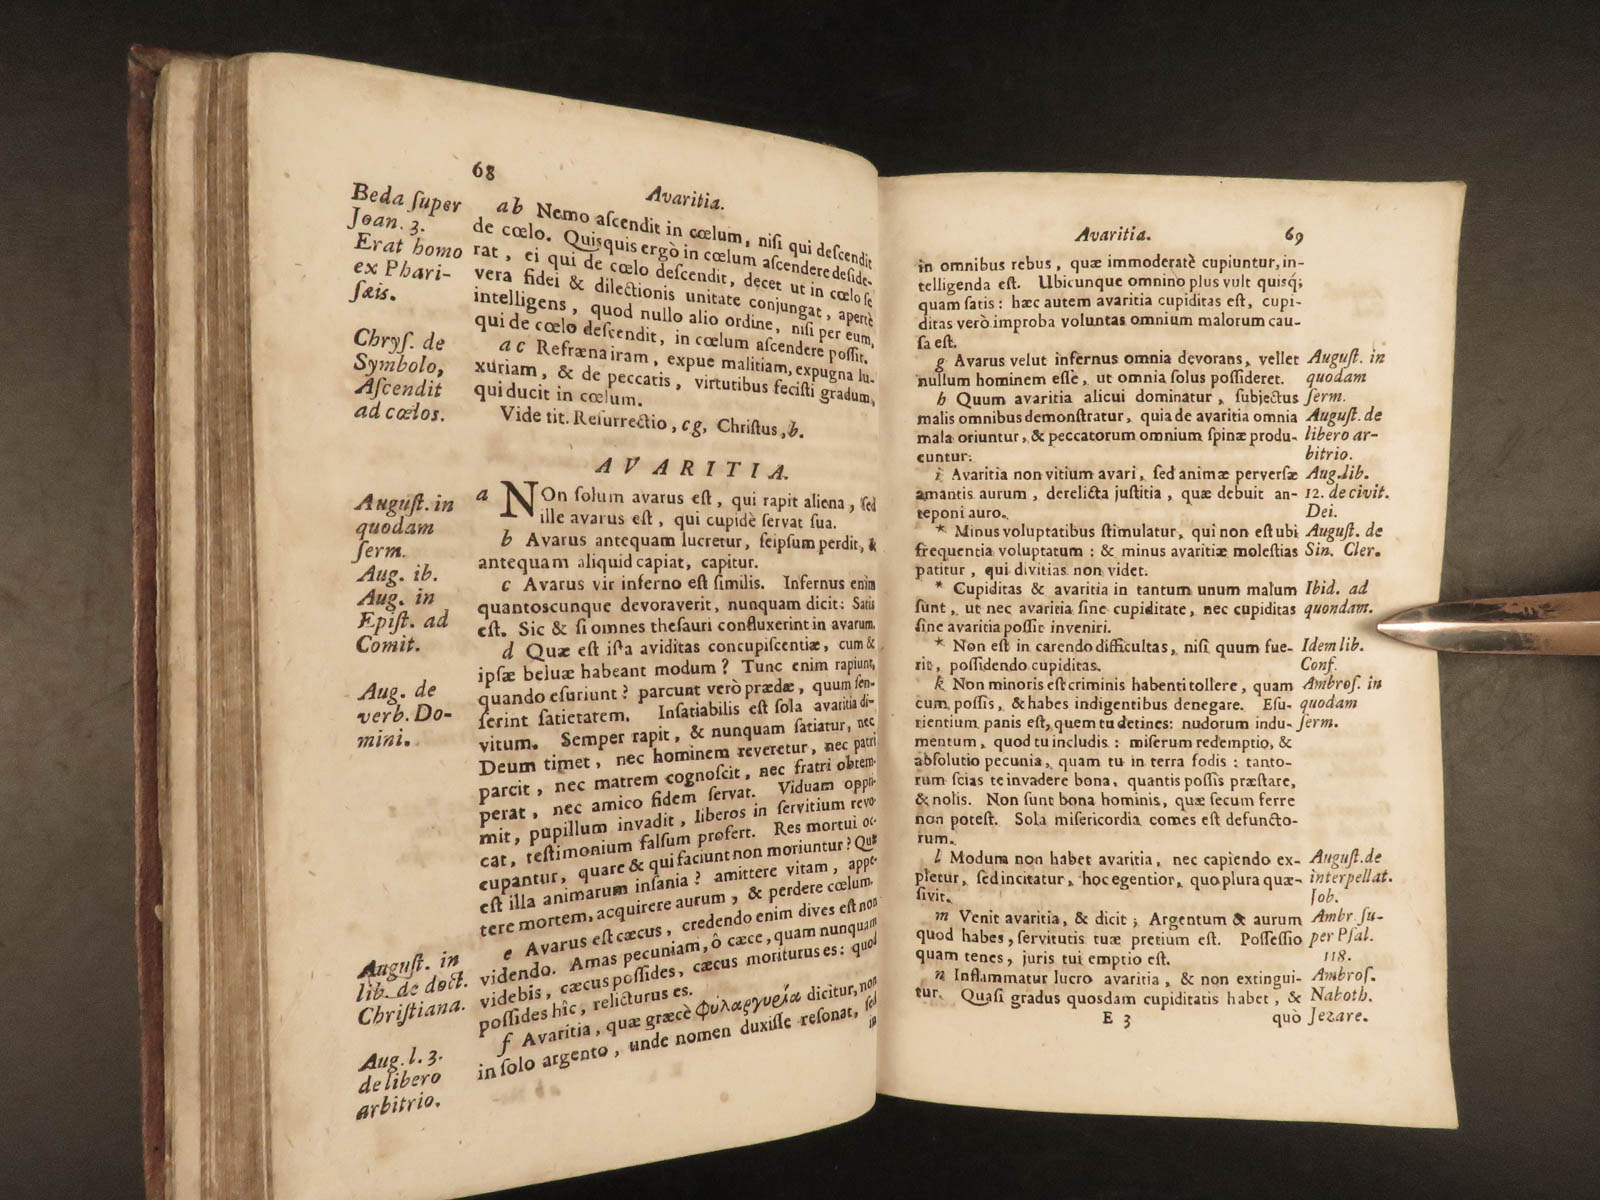 68
Avaritia.
Beda ſuper
Joan. 3.
Erat homo
ex Phari-
ſæis.
Chryſ. de
Symbolo,
Aſcendit
ad cœlos.
ab Nemo aſcendit in cœlum, niſi qui deſcendit
de cœlo. Quisquis ergò in cœlum aſcendere deſide-
rat, ei qui de cœlo deſcendit, decet ut in cœlo ſe
vera fidei & dilectionis unitate conjungat, apertè
intelligens, quod nullo alio ordine, niſi per eum,
qui de cœlo deſcendit, in cœlum aſcendere poſſit.
ac Refræna iram, expue malitiam, expugna lu-
xuriam, & de peccatis, virtutibus feciſti gradum,
qui ducit in cœlum.
Vide tit. Reſurrectio, cg, Chriſtus, b.
AVARITIA.
Auguſt. in
quodam
ſerm.
Aug. ib.
Aug. in
Epiſt. ad
Comit.
Aug. de
verb. Do-
mini.
Auguſt. in
lib. de doct.
Chriſtiana.
Aug. l. 3.
de libero
arbitrio.
a NOn ſolum avarus eſt, qui rapit aliena, ſed
ille avarus eſt, qui cupidè ſervat ſua.
b Avarus antequam lucretur, ſeipſum perdit, &
antequam aliquid capiat, capitur.
c Avarus vir inferno eſt ſimilis. Infernus enim
quantoscunque devoraverit, nunquam dicit: Satis
eſt. Sic & ſi omnes theſauri confluxerint in avarum.
d Quæ eſt iſta aviditas concupiſcentiæ, cum &
ipſæ beluæ habeant modum? Tunc enim rapiunt,
quando eſuriunt? parcunt verò prædæ, quum ſen-
ſerint ſatietatem. Inſatiabilis eſt ſola avaritia di-
vitum. Semper rapit, & nunquam ſatiatur, nec
Deum timet, nec hominem reveretur, nec patri
parcit, nec matrem cognoſcit, nec fratri obtem-
perat, nec amico fidem ſervat. Viduam oppri-
mit, pupillum invadit, liberos in ſervitium revo-
cat, teſtimonium falſum profert. Res mortui oc-
cupantur, quare & qui faciunt non moriuntur? Quæ
eſt illa animarum inſania? amittere vitam, appe-
tere mortem, acquirere aurum, & perdere cœlum.
e Avarus eſt cæcus, credendo enim dives eſt non
videndo. Amas pecuniam, ô cæce, quam nunquam
videbis, cæcus poſſides, cæcus moriturus es: quod
poſſides hîc, relicturus es.
f Avaritia, quæ græcè φυλαργυρία dicitur, non
in ſolo argento, unde nomen duxiſſe reſonat, ſed
in
Avaritia.
69
in omnibus rebus, quæ immoderatè cupiuntur, in-
telligenda eſt. Ubicunque omnino plus vult quisq;
quam ſatis: hæc autem avaritia cupiditas eſt, cupi-
ditas verò improba voluntas omnium malorum cau-
ſa eſt.
g Avarus velut infernus omnia devorans, vellet
nullum hominem eſſe, ut omnia ſolus poſſideret.
h Quum avaritia alicui dominatur, ſubjectus
malis omnibus demonſtratur, quia de avaritia omnia
mala oriuntur, & peccatorum omnium ſpinæ produ-
cuntur.
i Avaritia non vitium avari, ſed animæ perverſæ
amantis aurum, derelicta juſtitia, quæ debuit an-
teponi auro.
* Minus voluptatibus ſtimulatur, qui non eſt ubi
frequentia voluptatum: & minus avaritiæ moleſtias
patitur, qui divitias non videt.
* Cupiditas & avaritia in tantum unum malum
ſunt, ut nec avaritia ſine cupiditate, nec cupiditas
ſine avaritia poſſit inveniri.
* Non eſt in carendo difficultas, niſi quum fue-
rit, poſſidendo cupiditas.
k Non minoris eſt criminis habenti tollere, quam
cum poſſis, & habes indigentibus denegare. Eſu-
rientium panis eſt, quem tu detines: nudorum indu-
mentum, quod tu includis: miſerum redemptio, &
abſolutio pecunia, quam tu in terra fodis: tanto-
rum ſcias te invadere bona, quantis poſſis præſtare,
& nolis. Non ſunt bona hominis, quæ ſecum ferre
non poteſt. Sola miſericordia comes eſt defuncto-
rum.
l Modum non habet avaritia, nec capiendo ex-
pletur, ſed incitatur, hoc egentior, quo plura quæ-
ſivit.
m Venit avaritia, & dicit; Argentum & aurum
quod habes, ſervitutis tuæ pretium eſt. Poſſeſſio
quam tenes, juris tui emptio eſt.
n Inflammatur lucro avaritia, & non extingui-
tur. Quaſi gradus quosdam cupiditatis habet, &
E 3
quò
Auguſt. in
quodam
ſerm.
Auguſt. de
libero ar-
bitrio.
Aug. lib.
12. de civit.
Dei.
Auguſt. de
Sin. Cler.
Ibid. ad
quondam.
Idem lib.
Conf.
Ambroſ. in
quodam
ſerm.
Auguſt. de
interpellat.
Job.
Ambr. ſu-
per Pſal.
118.
Ambroſ.
Naboth.
Jezare.